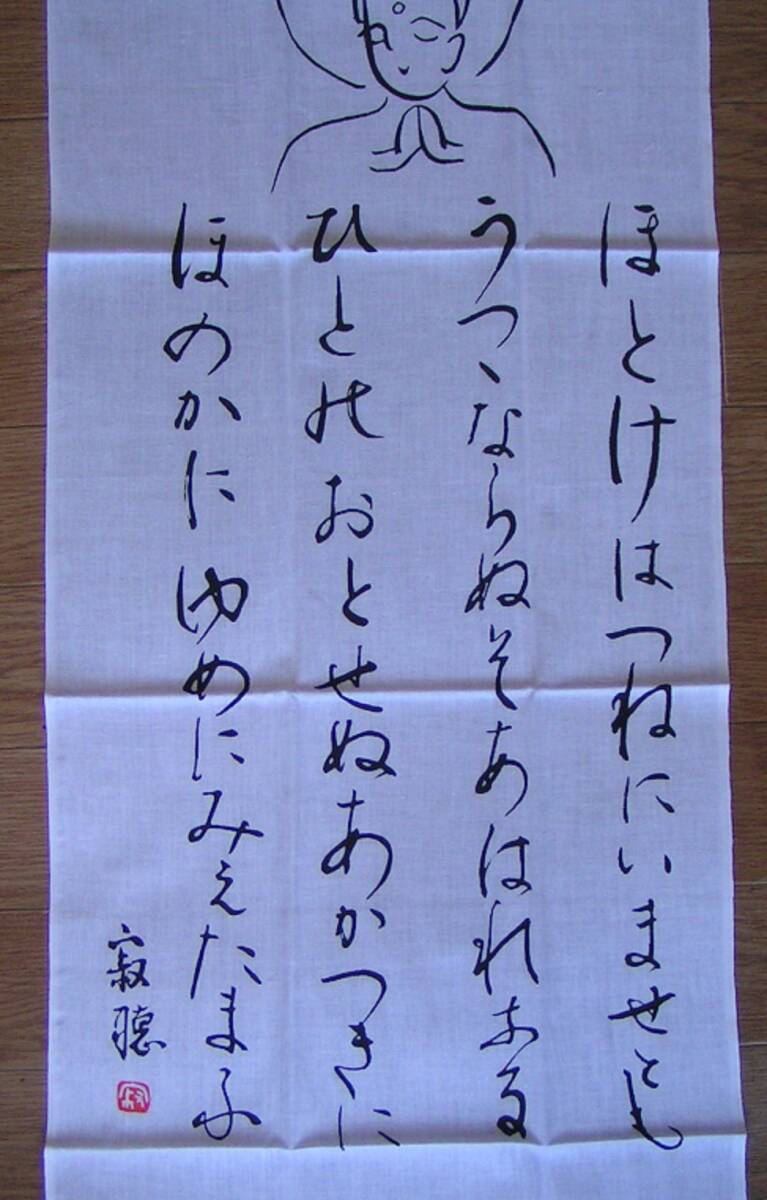 ほとけはつねにいませとも
うつゝならぬそあはれなる
ひとのおとせぬあかつきに
ほのかにゆめにみえたまふ
寂聴